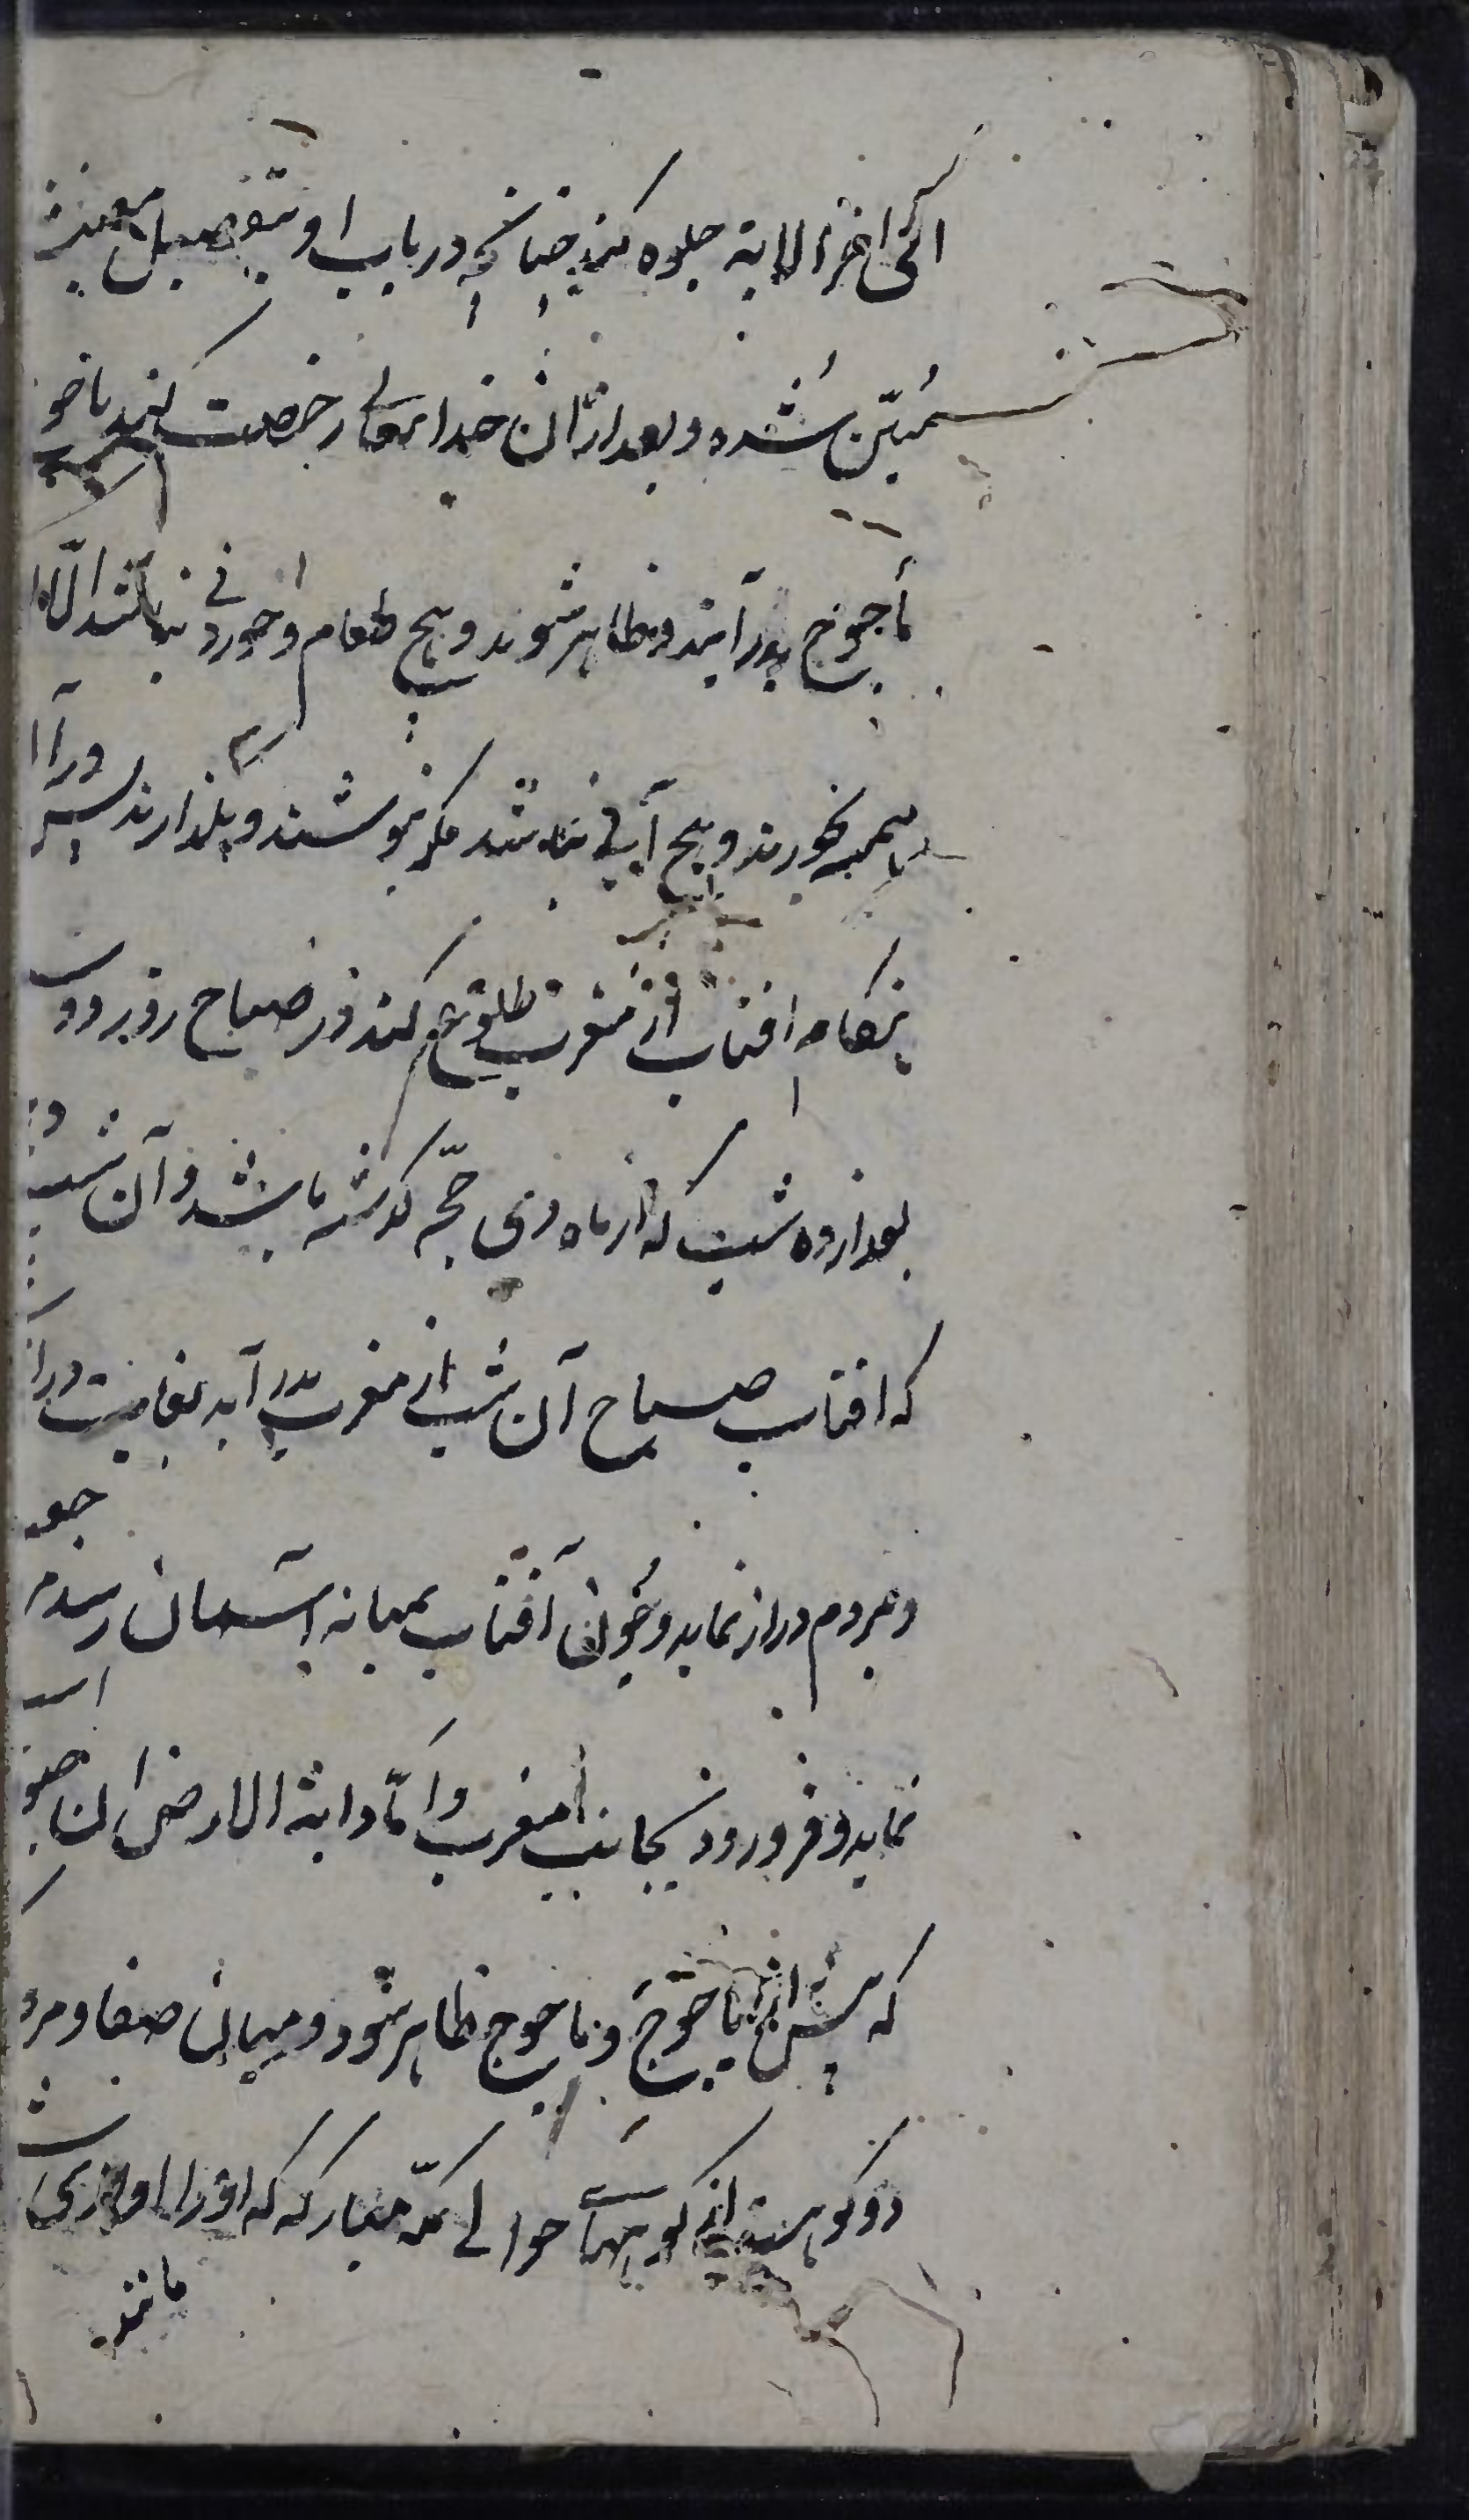 الی اخر الایة جلوه کند چنانچه در باب او بتفصیل معین
مُبیّن شده و بعد ازان خدای تعالی رخصت کند یاجو
مأجوج بدر آیند و ظاهر شوند و هیچ طعام و خوردنی نباشد الّا
همه بخورند و هیچ آبی نباشد مکر بنوشند و بکذارند پس درآ
هنکام افتاب از مغرب طلوع کند در صباح روز
بعد از ده شب که از ماه ذی حجّه کذشته باشد و آن شب
که افتاب صباح آن شب از مغرب بدر آید بغایت درا
و بمردم دراز نماید و چون آفتاب بمیانه آسمان رسد
نماید و فرو رود بجانب مغرب و امّا دابة الارض ان
که پیش از یاجوج و ماجوج ظاهر شود و میان صفا و مرو
دو کوهست از کوههای حوالی مکّه مبارکه که او را اوازی
مانند